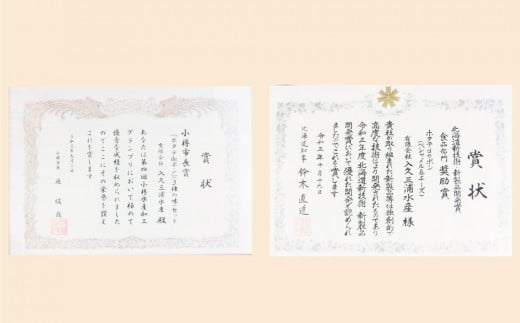 賞状
小樽市長賞
有限会社 入久三浦水産 殿
あなたは第四回小樽水産加工
グランプリにおいて極めて
優秀な成績を収められました
のでここにその栄誉を讃え
これを賞します
小樽市長 迫 俊哉
賞状
北海道新技術・新製品開発賞
食品部門 奨励賞
有限会社 入久三浦水産 様
貴社が取り組まれた新製品等は独創的で
高度な技術により開発されたものであり
令和三年度北海道新技術・新製品
開発賞において優れた開発と認められ
ましたのでこれを賞します
令和三年十月十八日
北海道知事 鈴木直道